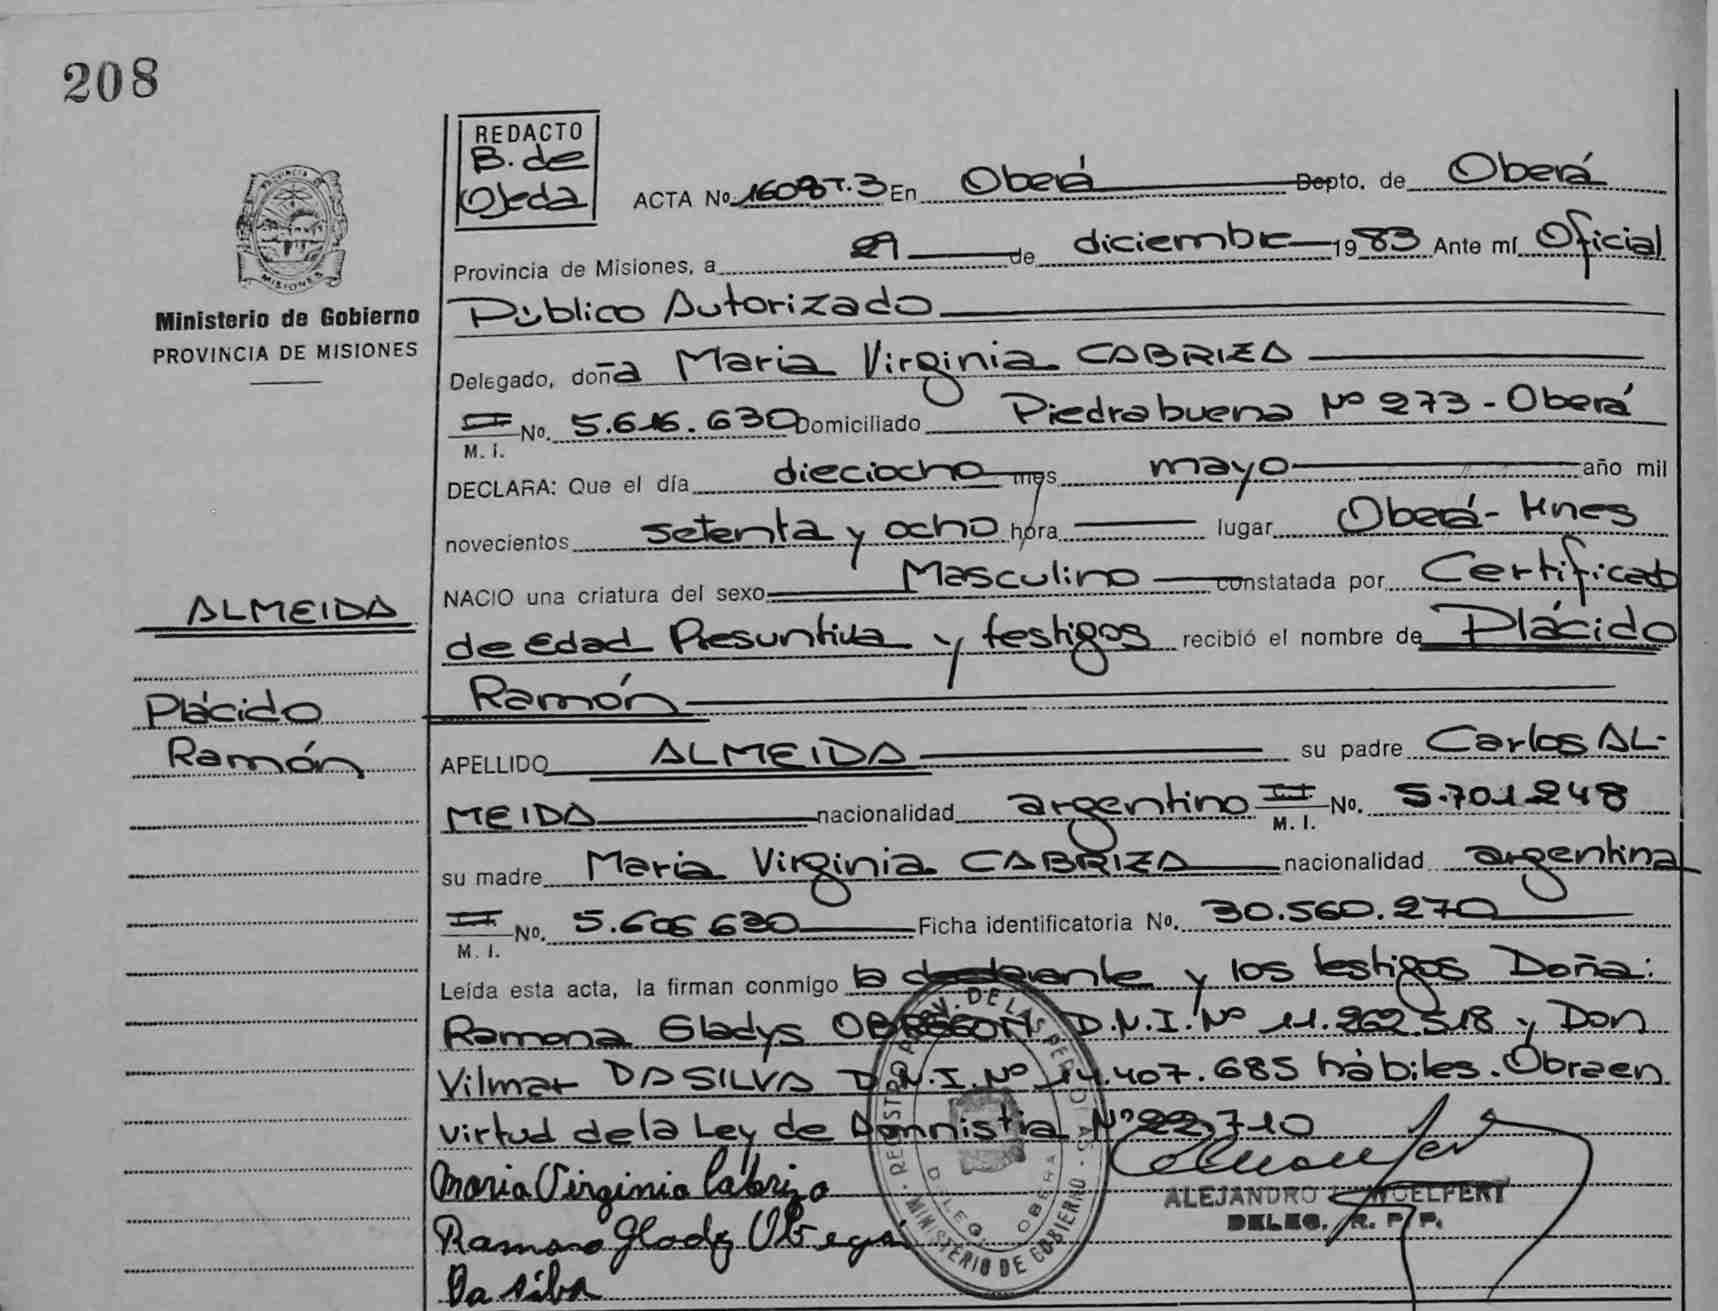 208
REDACTO
B. de
Ojeda
ACTA No. 1608 T.3 En Oberá Depto. de Oberá
Provincia de Misiones, a 29 de diciembre 1983 Ante mí Oficial
Público Autorizado
Delegado, doña Maria Virginia CABRIZA
M. I. No. 5.616.630 Domiciliado Piedrabuena Nº 273 - Oberá
DECLARA: Que el día dieciocho mes mayo año mil
novecientos setenta y ocho hora lugar Oberá - Mnes
NACIO una criatura del sexo Masculino constatada por Certificado
de Edad Presuntiva y testigos recibió el nombre de Plácido
Ramón
APELLIDO ALMEIDA su padre Carlos AL-
MEIDA nacionalidad argentino M. I. No. 5.701.248
su madre Maria Virginia CABRIZA nacionalidad argentina
M. I. No. 5.606.630 Ficha identificatoria No. 30.560.270
Leída esta acta, la firman conmigo la declarante y los testigos Doña:
Ramona Gladys OBREGON D.N.I. Nº 11.262.518 y Don
Vilmar DASILVA D.N.I. Nº 14.407.685 hábiles. Obra en
virtud de la Ley de Amnistia Nº 22.710
Maria Virginia Cabriza
Ramona Glady Obregon
Da silva
ALEJANDRO WOELFERT
DELEG. R. P. P.
REGISTRO PROV. DE LAS PERSONAS
MINISTERIO DE GOBIERNO
DELEG. OBERA
PROVINCIA DE
MISIONES
Ministerio de Gobierno
PROVINCIA DE MISIONES
ALMEIDA
Plácido
Ramón